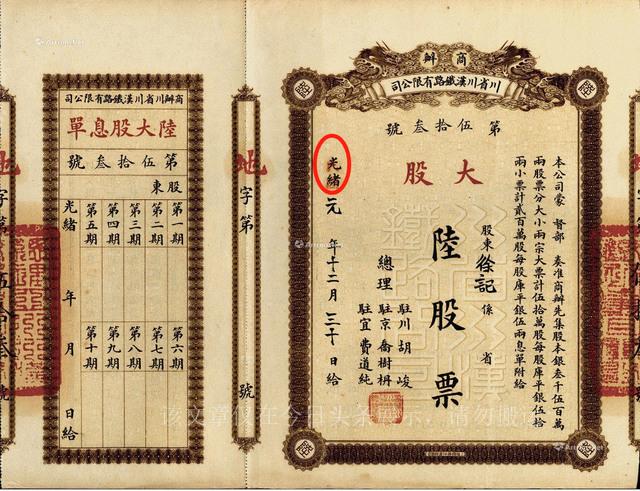 商辦
川省川漢鐵路有限公司
第伍拾叁號
大股
本公司蒙 督部 奏准商辦先集股本銀叁千伍百萬
兩股票分大小兩宗大票計伍拾萬股每股庫平銀伍拾
兩小票計貳百萬股每股庫平銀伍兩息單附給
股東徐記係 省
陸股票
總理
駐川胡峻
駐京喬樹枬
駐宜費道純
光緒元年十二月三十日給
地字第 號
商辦川省川漢鐵路有限公司
陸大股息單
第伍拾叁號
股東
第一期
第二期
第三期
第四期
第五期
第六期
第七期
第八期
第九期
第十期
光緒 年 月 日給
地字第伍拾叁號
该文章仅在今日头条展示，请勿搬运